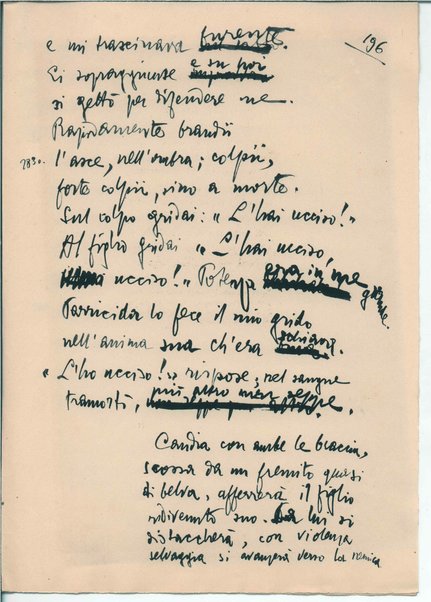 196
e mi trascinava furente.
Ei sopraggiunse e su noi
si gettò per difendere me.
Rapidamente brandii
2830. l'asce, nell'ombra; colpii,
forte colpii, sino a morte.
Sul colpo gridai: « L'hai ucciso!»
Al figlio gridai « L'hai ucciso,
ucciso!» Potenza era in me grande.
Parricida lo fece il mio grido
nell'anima sua ch'era schiava.
« L'ho ucciso!» rispose; nel sangue
tramortì, più altro non seppe.
Candia con ambe le braccia,
scossa da un fremito quasi
di belva, afferrerà il figlio
ridivenuto suo. Da lui si
distaccherà, con violenza
selvaggia si avanzerà verso la nemica